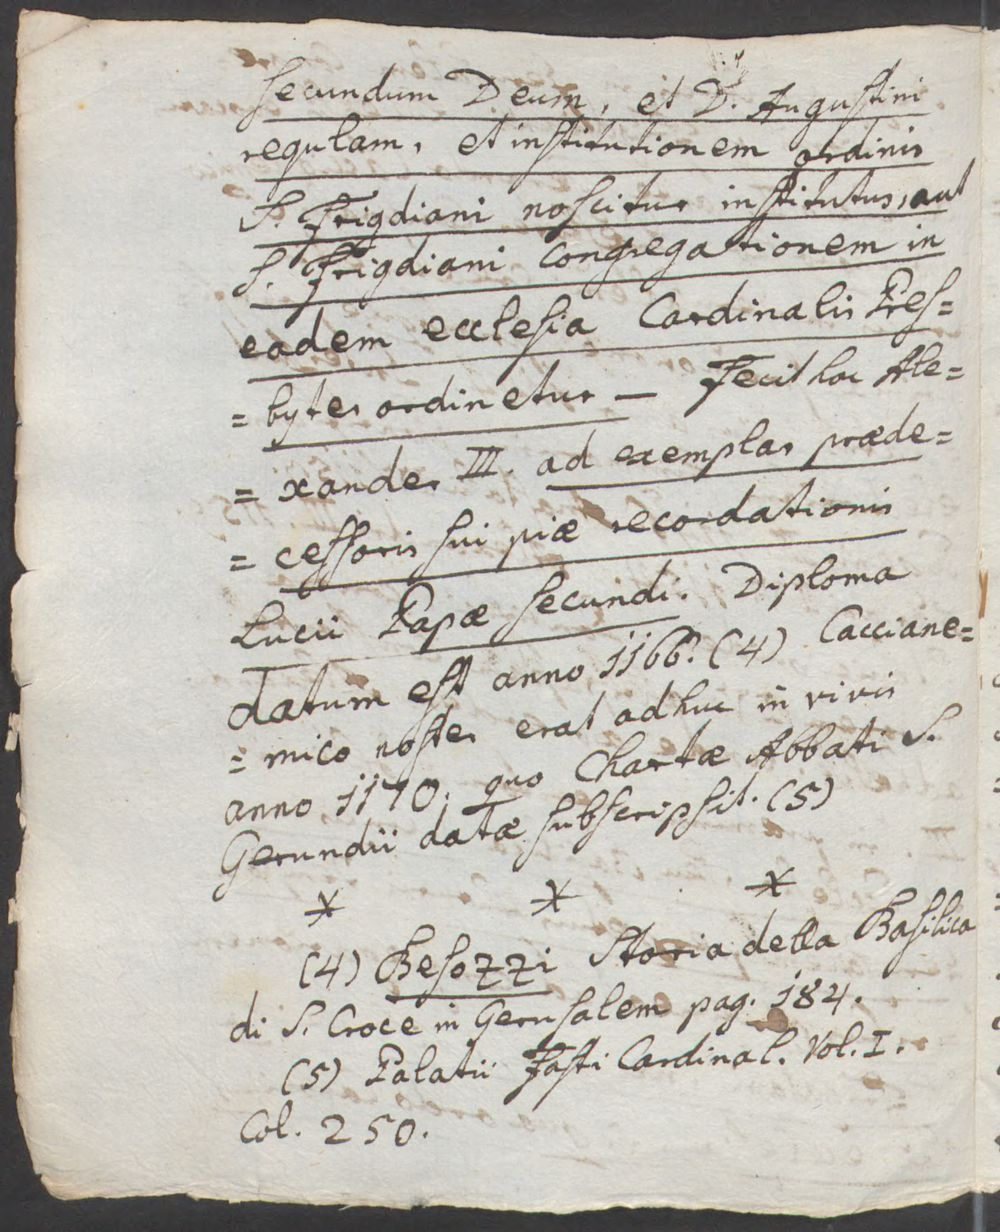 secundum Deum, et D. Augustini
regulam, et institutionem ordinis
S. Frigdiani noscitur institutus, aut
S. Frigdiani congregationem in
eadem ecclesia Cardinalis Pres=
=byter ordinetur — Fecit hoc Ale=
=xander III. ad exemplar præde=
=cessoris sui piæ recordationis
Lucii Papæ Secundi. Diploma
datum est anno 1166. (4) Cacciane=
=mico noster erat adhuc in vivis
anno 1170, quo Chartæ Abbati S.
Gerundii datæ subscripsit. (5)
* * *
(4) Besozzi Storia della Basilica
di S. Croce in Gerusalem pag. 184.
(5) Palatii Fasti Cardinal. Vol. I.
Col. 250.